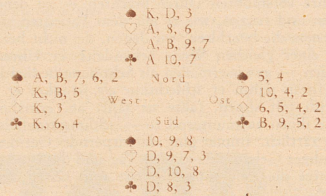 ♠ K, D, 3
♡ A, 8, 6
♢ A, B, 9, 7
♣ A 10, 7
♠ A, B, 7, 6, 2
♡ K, B, 5
♢ K, 3
♣ K, 6, 4
Nord
West
Ost
Süd
♠ 5, 4
♡ 10, 4, 2
♢ 6, 5, 4, 2
♣ B, 9, 5, 2
♠ 10, 9, 8
♡ D, 9, 7, 3
♢ D, 10, 8
♣ D, 8, 3